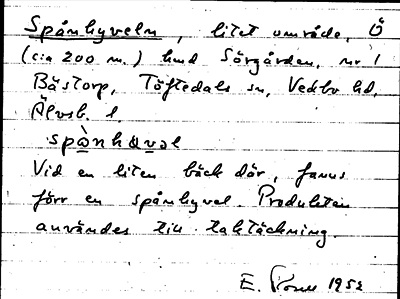 Spånhyveln, litet område, Ö
(cia 200 m.) hmd Sörgården, nr 1
Bästorp, Töftedals sn, Vedbo hd,
Älvsb. l.
spànhøvəl
Vid en liten bäck där, fanns
förr en spånhyvel. Produkten
användes till taktäckning.
E. 1952